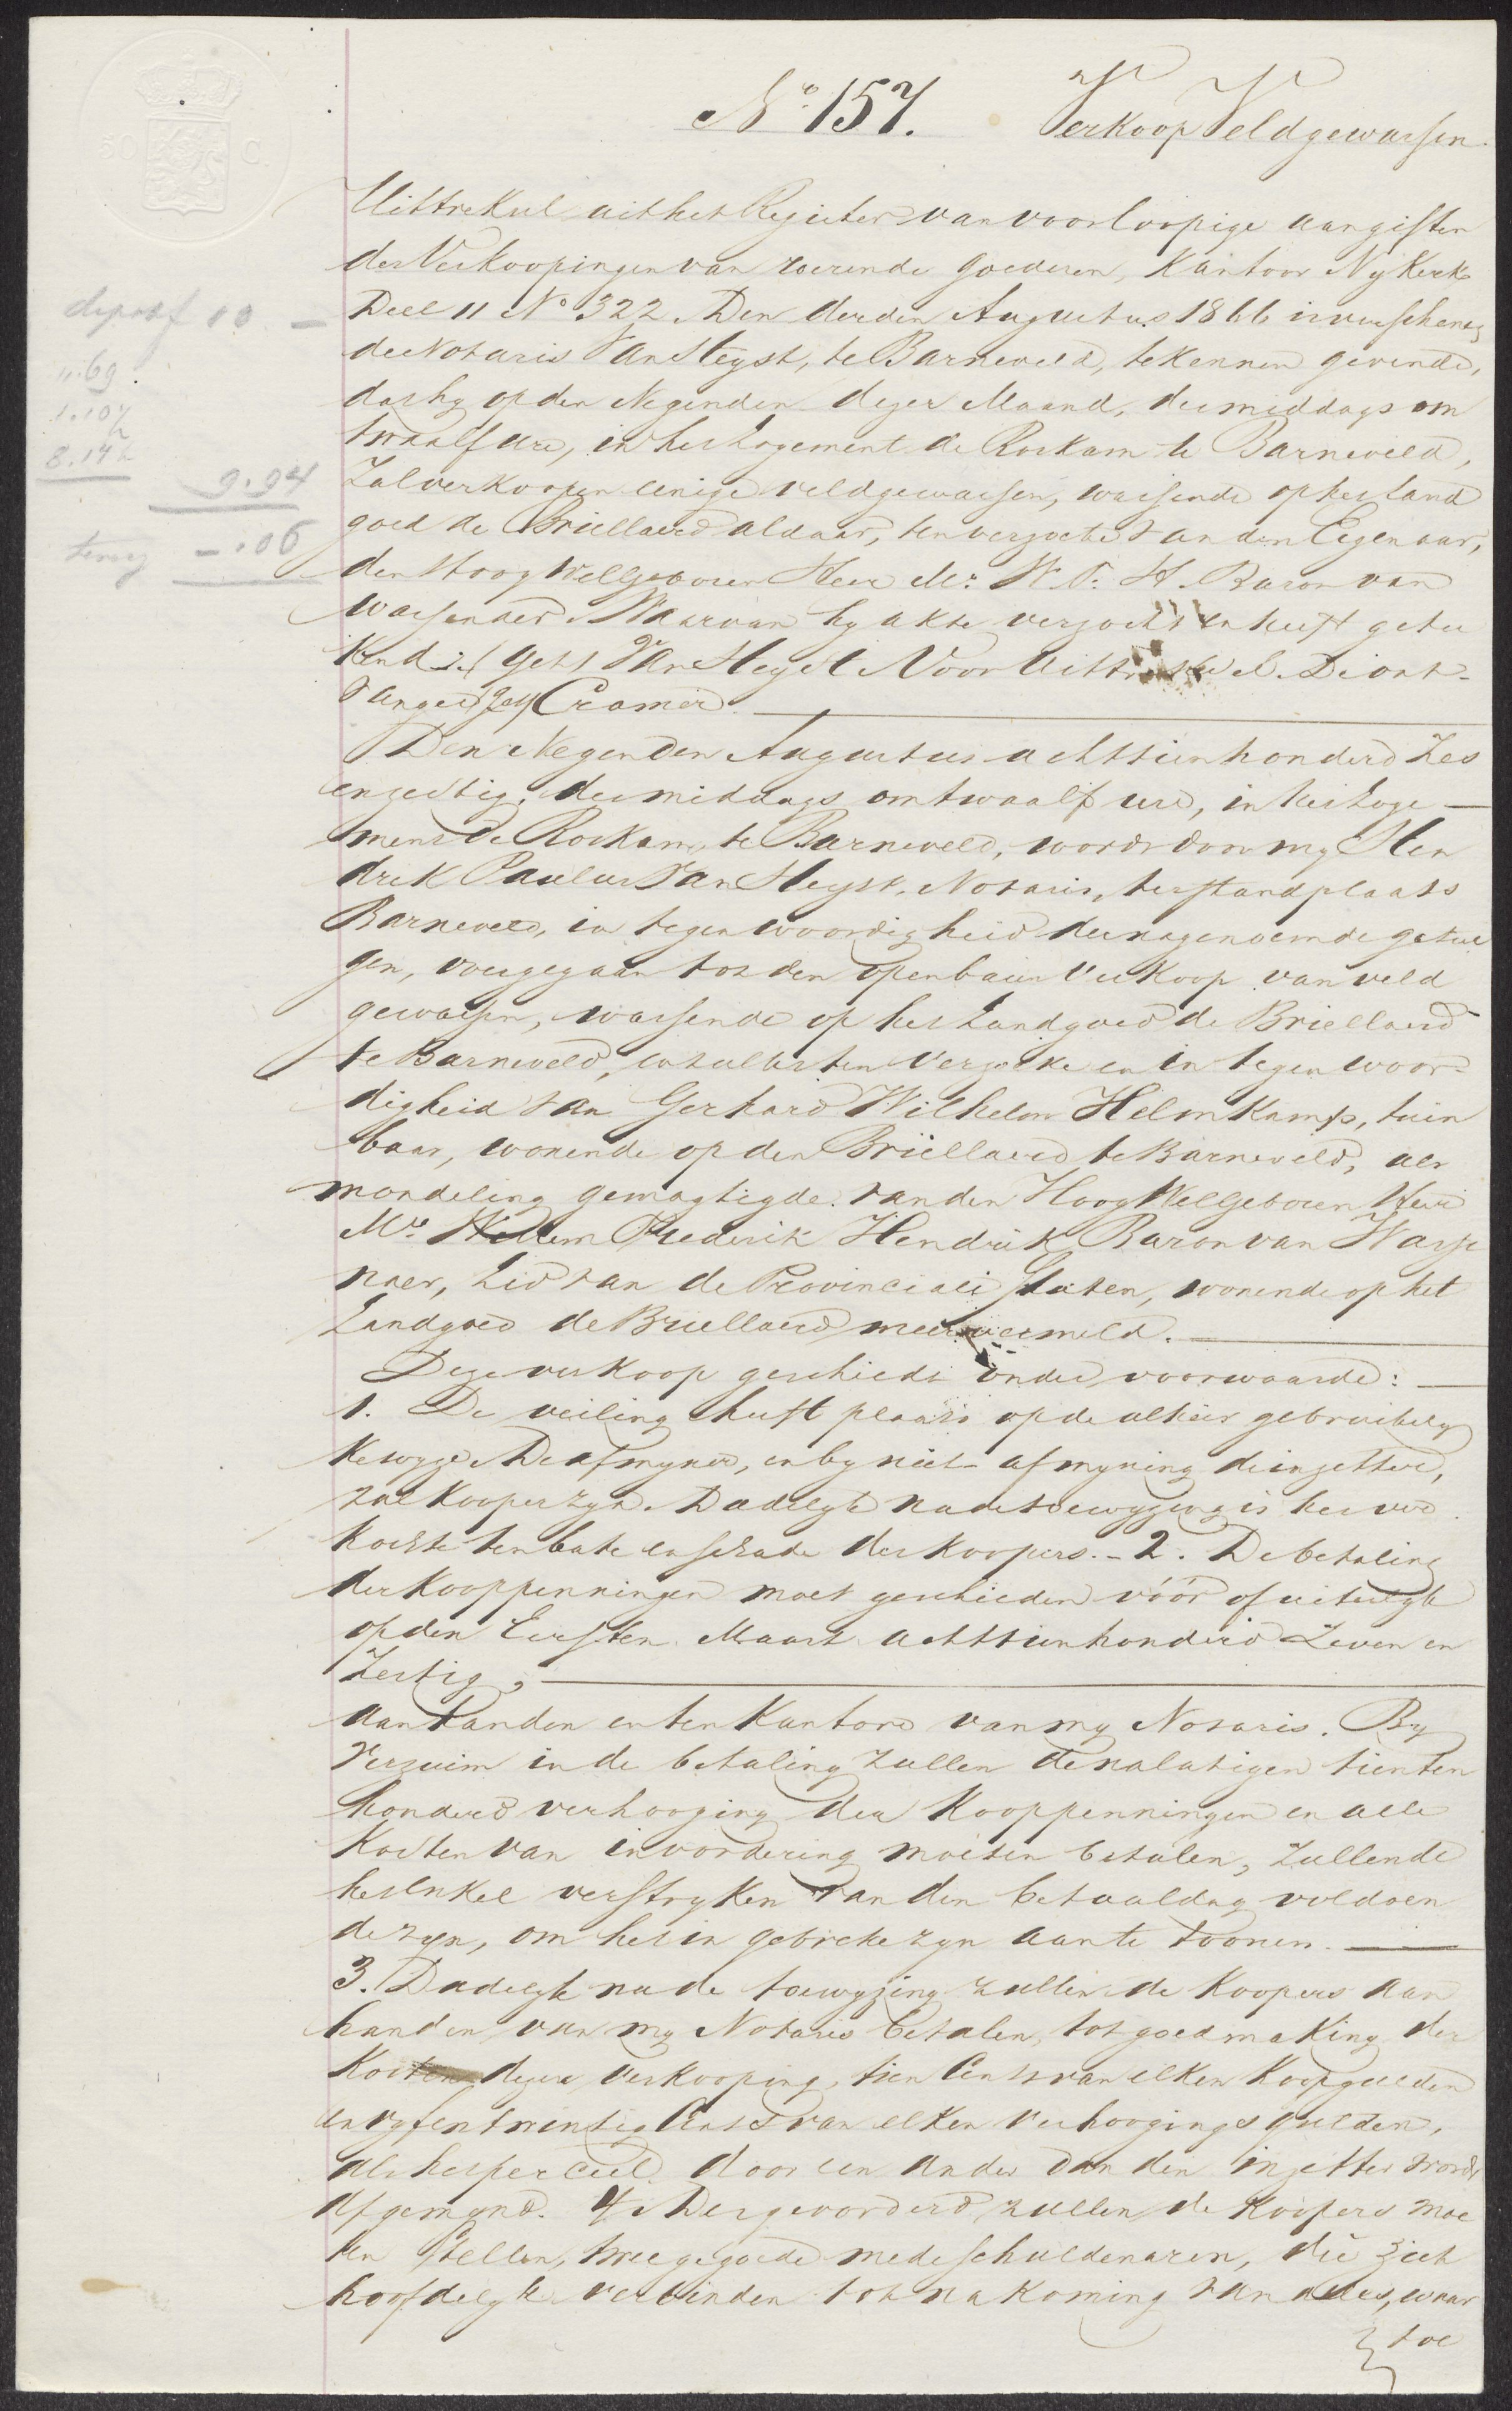 No. 157. Verkoop Veldgewassen.
Uittreksel uit het Register van voorloopige aangiften
der Verkoopingen van roerende goederen, Kantoor Nykerk
Deel 11 No 322. Den derden Augustus 1866 is verschenen
de Notaris Van Heyst, te Barneveld, te kennen gevende,
dat hy op den Negenden dezer Maand, des middags om
twaalf ure, in het Logement de Roskam te Barneveld,
zal verkoopen eenige veldgewassen, wassende op het Land
goed de Briellaerd aldaar, ten verzoeke van den Eigenaar,
den Hoog Welgeboren Heer Mr. W. F. H. Baron van
Wassenaer. Waarvan hy akte verzocht en heeft getee
kend. (get) Van Heyst Voor Uittreksel. De ont-
vanger (get) Cramer.
Den Negenden Augustus achttienhonderd zes
en zestig, des middags om twaalf ure, in het Loge-
ment de Roskam, te Barneveld, wordt door my Hen
drik Paulus Van Heyst, Notaris, ter standplaats
Barneveld, in tegenwoordigheid der nagenoemde getui
gen, overgegaan tot den openbaren Verkoop van veld
gewassen, wassende op het Landgoed de Briellaerd
te Barneveld, en zulks ten verzoeke en in tegenwoor-
digheid van Gerhard Wilhelm Helmkamp, tuin
baas, wonende op den Briellaerd, te Barneveld, als
mondeling gemagtigde van den Hoog WelGeboren Heer
Mr. Willem Frederik Hendrik Baron van Wasse
naer, Lid van de Provinciale Staten, wonende op het
Landgoed de Briellaerd meervermeld.
Deze verkoop geschiedt onder voorwaarde:
1. De veiling heeft plaats op de alhier gebruikely
ke wyze. De afmyner, en by niet-afmyning de inzetter,
zal kooper zyn. Dadelyk na de toewyzing is het ver
kochte ten bate en schade des koopers. - 2. De betaling
der kooppenningen moet geschieden vóór of uiterlyk
op den Eersten Maart achttienhonderd Zeven en
Zestig,
aan handen en ten Kantore van my Notaris. By
verzuim in de betaling zullen de nalatigen tien ten
honderd verhooging der kooppenningen en alle
kosten van invordering moeten betalen, zullende
het enkel verstryken van den betaaldag voldoen
de zyn, om het in gebreke zyn aan te toonen.
3. Dadelyk na de toewyzing zullen de koopers aan
handen van my Notaris betalen, tot goedmaking der
kosten dezer verkooping, tien Cents van elken koopgulden
en vyfentwintig Cents van elken verhoogings gulden,
als het perceel door een ander dan den inzetter wordt
afgemynd. 4. Des gevorderd zullen de koopers moe
ten stellen, twee gegoede medeschuldenaren, die zich
hoofdelyk verbinden tot nakoming van alles, waar
toe
depot f 10. -
11.69
1.10½
8.14½
9.94
terug -.06